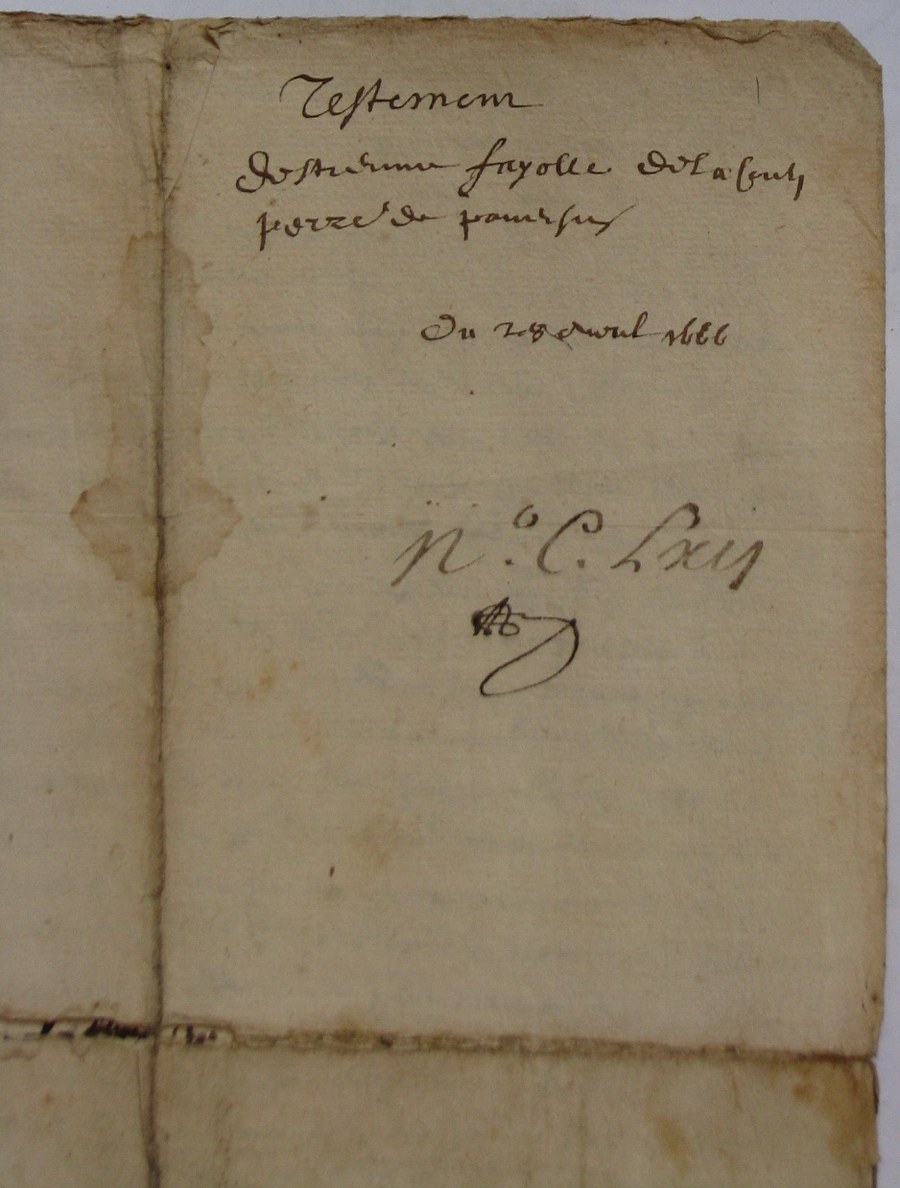 Testement
destienne fayolle dela
perre de
Du 28e avril 1666
N.º C. Lxij